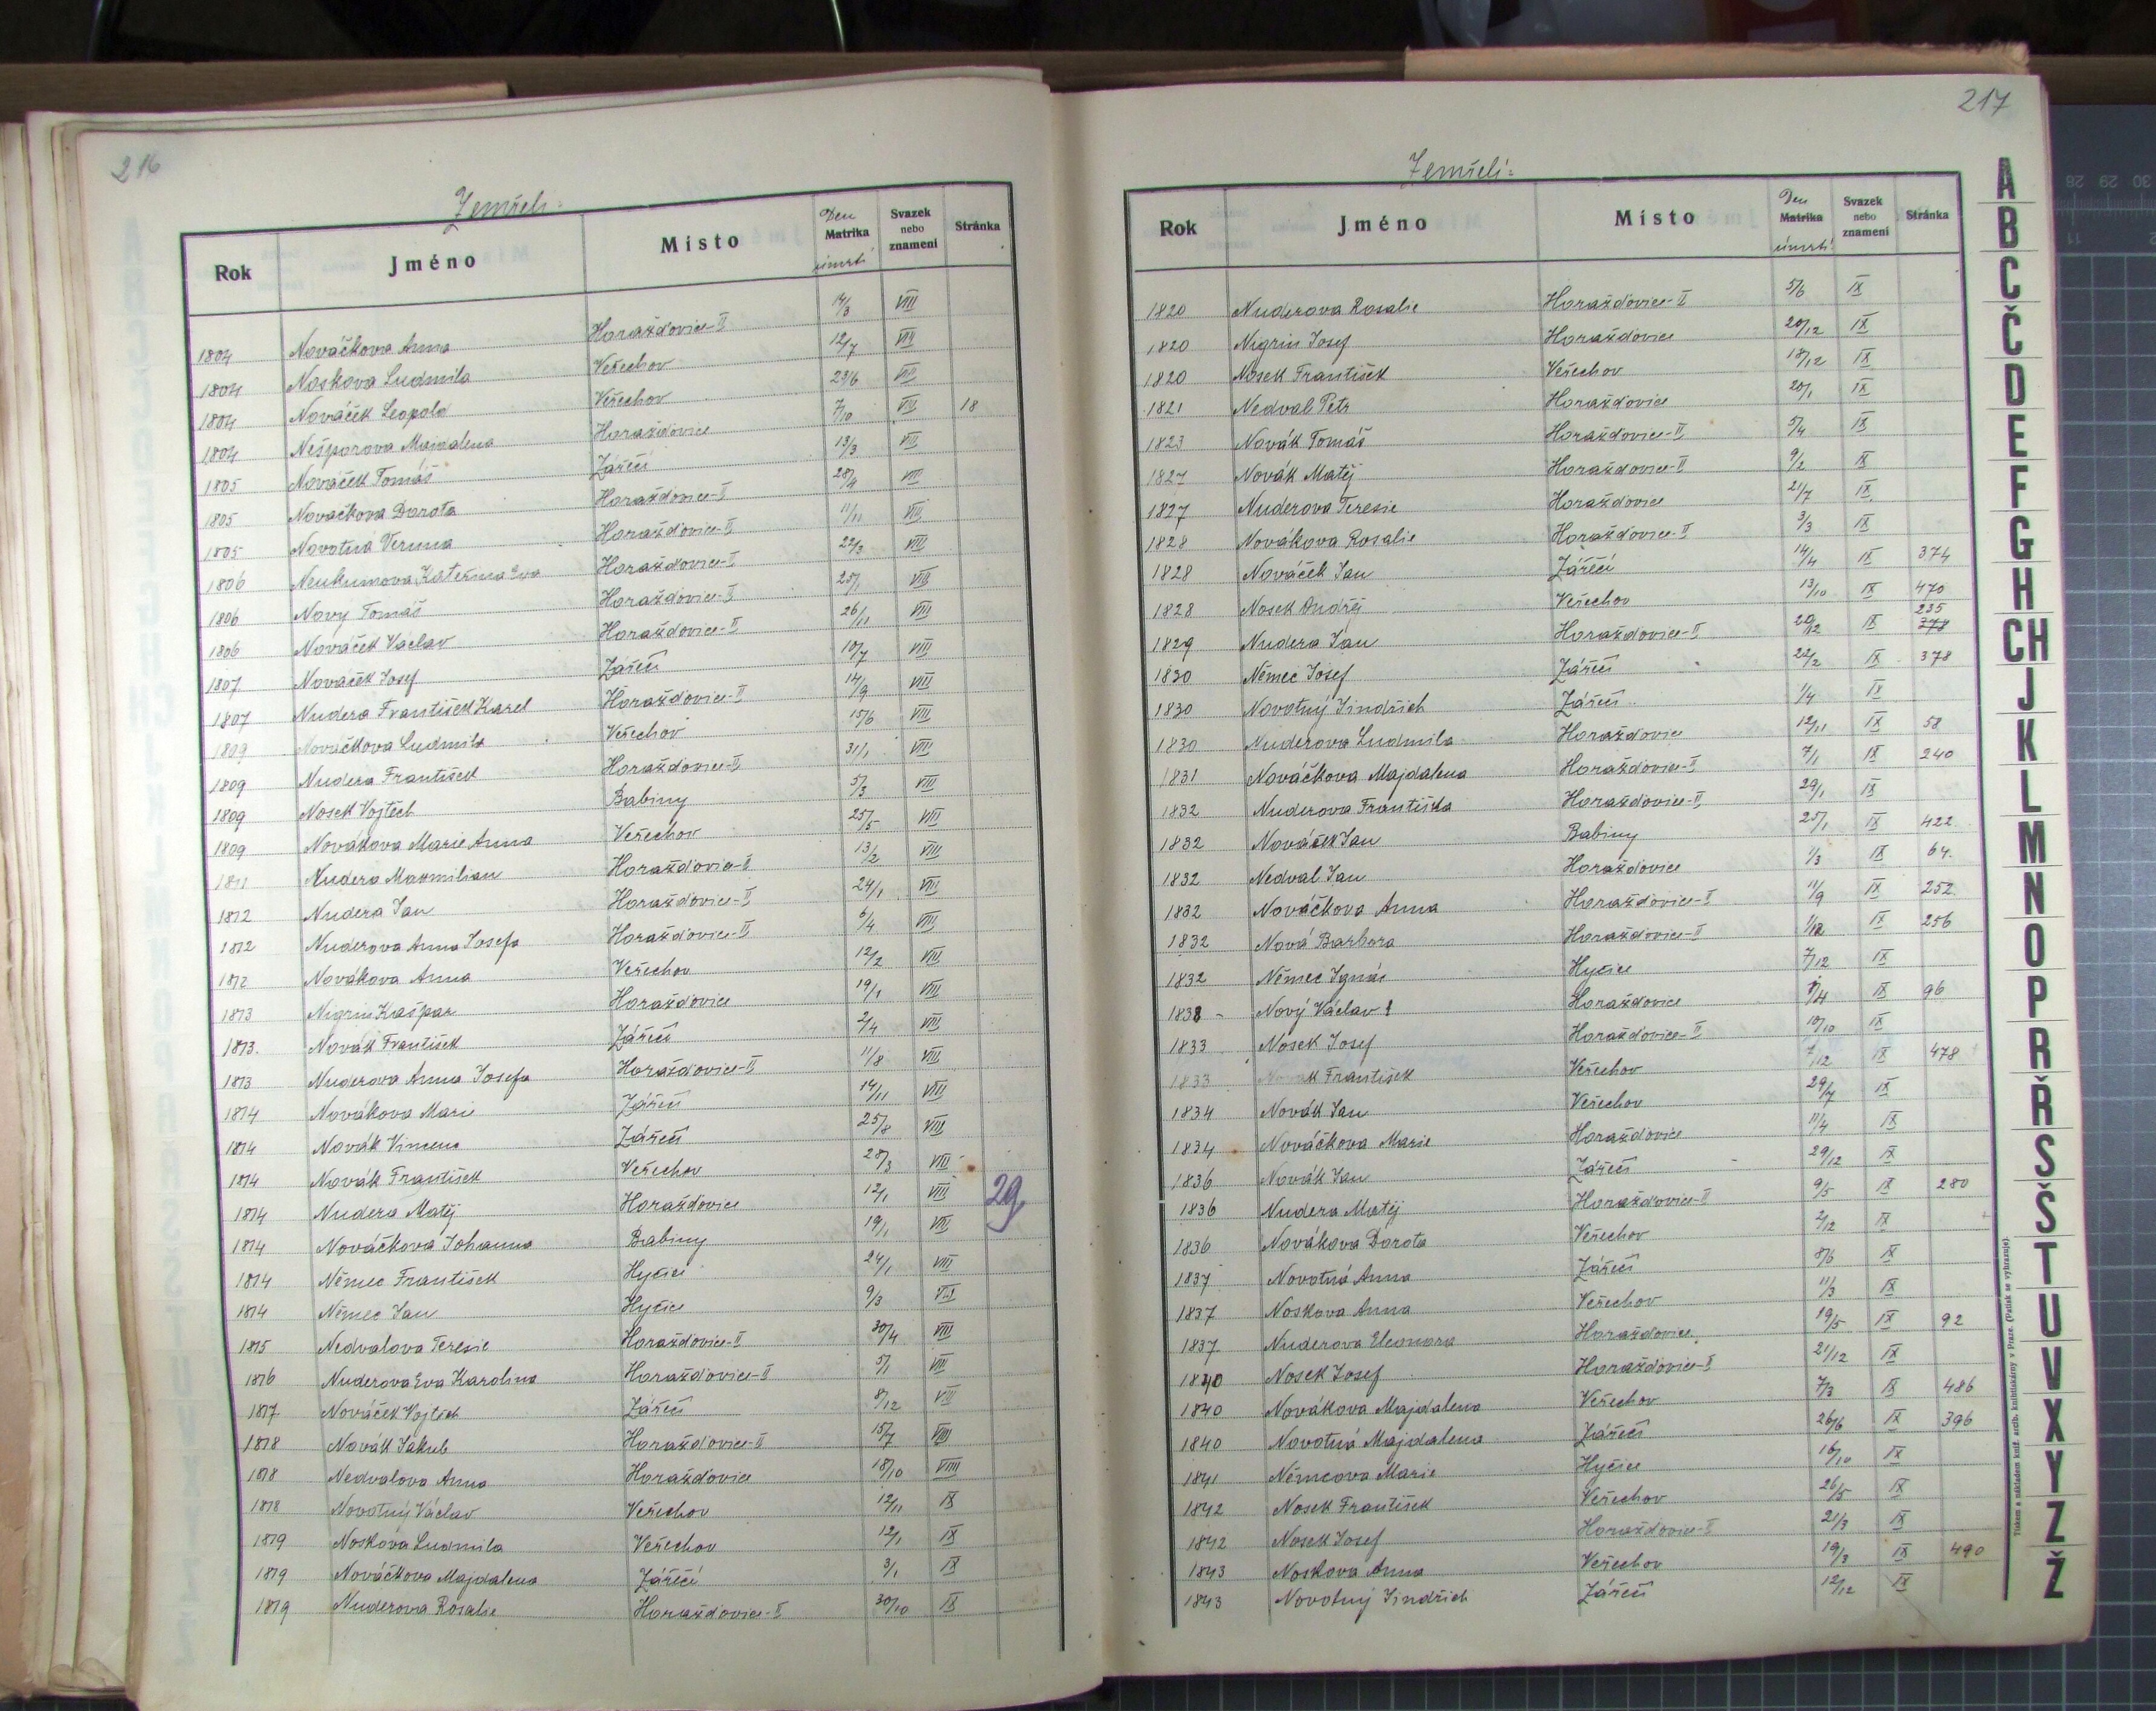 216
Zemřeli:
Rok Jméno Místo Den Matrika úmrtí Svazek nebo znamení Stránka
1804 Nováčkova Anna Horažďovice-II 14/3 VIII
1804 Noskova Ludmila Veřechov 12/7 VIII
1804 Nováček Leopold Veřechov 23/6 VIII
1804 Nešporova Majdalena Horažďovice 7/10 VIII 18
1805 Nováček Tomáš Zářečí 13/3 VIII
1805 Nováčkova Dorota Horažďovice-II 28/4 VIII
1805 Novotná Veruna Horažďovice-II 11/11 VIII
1806 Neukumova Kateřina Eva Horažďovice-II 22/3 VIII
1806 Novy Tomáš Horažďovice-II 25/1 VIII
1806 Nováček Václav Horažďovice-II 26/11 VIII
1807 Nováček Josef Zářečí 10/7 VIII
1807 Nudera František Karel Horažďovice-II 14/9 VIII
1809 Nováčkova Ludmila Veřechov 15/6 VIII
1809 Nudera František Horažďovice-II 31/1 VIII
1809 Nosek Vojtěch Babiny 5/3 VIII
1809 Novákova Marie Anna Veřechov 25/5 VIII
1811 Nudera Maxmilian Horažďovice-II 13/2 VIII
1812 Nudera Jan Horažďovice-II 24/1 VIII
1812 Nuderova Anna Josefa Horažďovice-II 6/4 VIII
1812 Novákova Anna Veřechov 12/2 VIII
1813 Nigrin Kašpar Horažďovice 19/1 VIII
1813. Novák František Zářečí 2/4 VIII
1813 Nuderova Anna Josefa Horažďovice-II 11/8 VIII
1814 Novákova Marie Zářečí 14/11 VIII
1814 Novák Vincenc Zářečí 25/8 VIII
1814 Novák František Veřechov 28/3 VIII
1814 Nudera Matěj Horažďovice 12/1 VIII 29
1814 Nováčková Johanna Babiny 19/1 VIII
1814 Němec František Hyčice 24/1 VIII
1814 Němec Jan Hyčice 9/3 VIII
1815 Nedvalova Teresie Horažďovice-II 30/4 VIII
1816 Nuderova Eva Karolina Horažďovice-II 5/1 VIII
1817 Nováček Vojtěch Zářečí 8/12 VIII
1818 Novák Jakub Horažďovice-II 15/7 VIII
1818 Nedvalova Anna Horažďovice 18/10 VIII
1818 Novotný Václav Veřechov 12/11 IX
1819 Noskova Ludmila Veřechov 12/1 IX
1819 Nováčkova Majdalena Zářečí 3/1 IX
1819 Nuderova Rosalie Horažďovice-II 30/10 IX
217
Zemřelí:
Rok Jméno Místo Den Matrika úmrtí Svazek nebo znamení Stránka
1820 Nuderova Rosalie Horažďovice-II 5/6 IX
1820 Nigrin Josef Horažďovice 20/12 IX
1820 Nosek František Veřechov 18/12 IX
1821 Nedval Petr Horažďovice 20/1 IX
1823 Novák Tomáš Horažďovice-II 5/4 IX
1827 Novák Matěj Horažďovice-II 9/2 IX
1827 Nuderova Teresie Horažďovice 21/7 IX
1828 Novákova Rosalie Horažďovice-II 3/3 IX
1828 Nováček Jan Zářečí 14/4 IX 374
1828 Nosek Andřej Veřechov 13/10 IX 470
1829 Nudera Jan Horažďovice-II 29/12 IX 235 378
1830 Němec Josef Zářečí 22/2 IX 378
1830 Novotný Jindřich Zářečí 1/4 IX
1830 Nuderova Ludmila Horažďovice 12/11 IX 58
1831 Nováčkova Majdalena Horažďovice-II 7/1 IX 240
1832 Nuderova Františka Horažďovice-II 29/1 IX
1832 Nováček Jan Babiny 25/1 IX 422
1832 Nedval Jan Horažďovice 1/3 IX 64.
1832 Nováčkova Anna Horažďovice-II 11/9 IX 252.
1832 Nová Barbora Horažďovice-II 1/12 IX 256
1832 Němec Ignác Hyčice 7/12 IX
1838 Nový Václav ! Horažďovice /4 IX 96
1833 Nosek Josef Horažďovice-II 10/10 IX
1833 František Veřechov 7/12 IX 478
1834 Novák Jan Veřechov 29/7 IX
1834 Nováčkova Marie Horažďovice 11/4 IX
1836 Novák Jan Zářečí 29/12 IX
1836 Nudera Matěj Horažďovice-II 9/5 IX 280
1836 Novákova Dorota Veřechov 2/12 IX
1837 Novotná Anna Zářečí 8/3 IX
1837 Noskova Anna Veřechov 11/3 IX
1837 Nuderova Eleonora Horažďovice 19/5 IX 92
1840 Nosek Josef Horažďovice-II 21/12 IX
1840 Novákova Majdalena Veřechov 7/3 IX 486
1840 Novotná Majdalena Zářečí 26/6 IX 396
1841 Němcova Marie Hyčice 16/10 IX
1842 Nosek František Veřechov 26/5 IX
1842 Nosek Josef Horažďovice-II 21/3 IX
1843 Noskova Anna Veřechov 19/3 IX 490
1843 Novotný Jindřich Zářečí 12/12 IX
A
B
C
Č
D
E
F
G
H
CH
J
K
L
M
N
O
P
R
Ř
S
Š
T
U
V
X
Y
Z
Ž